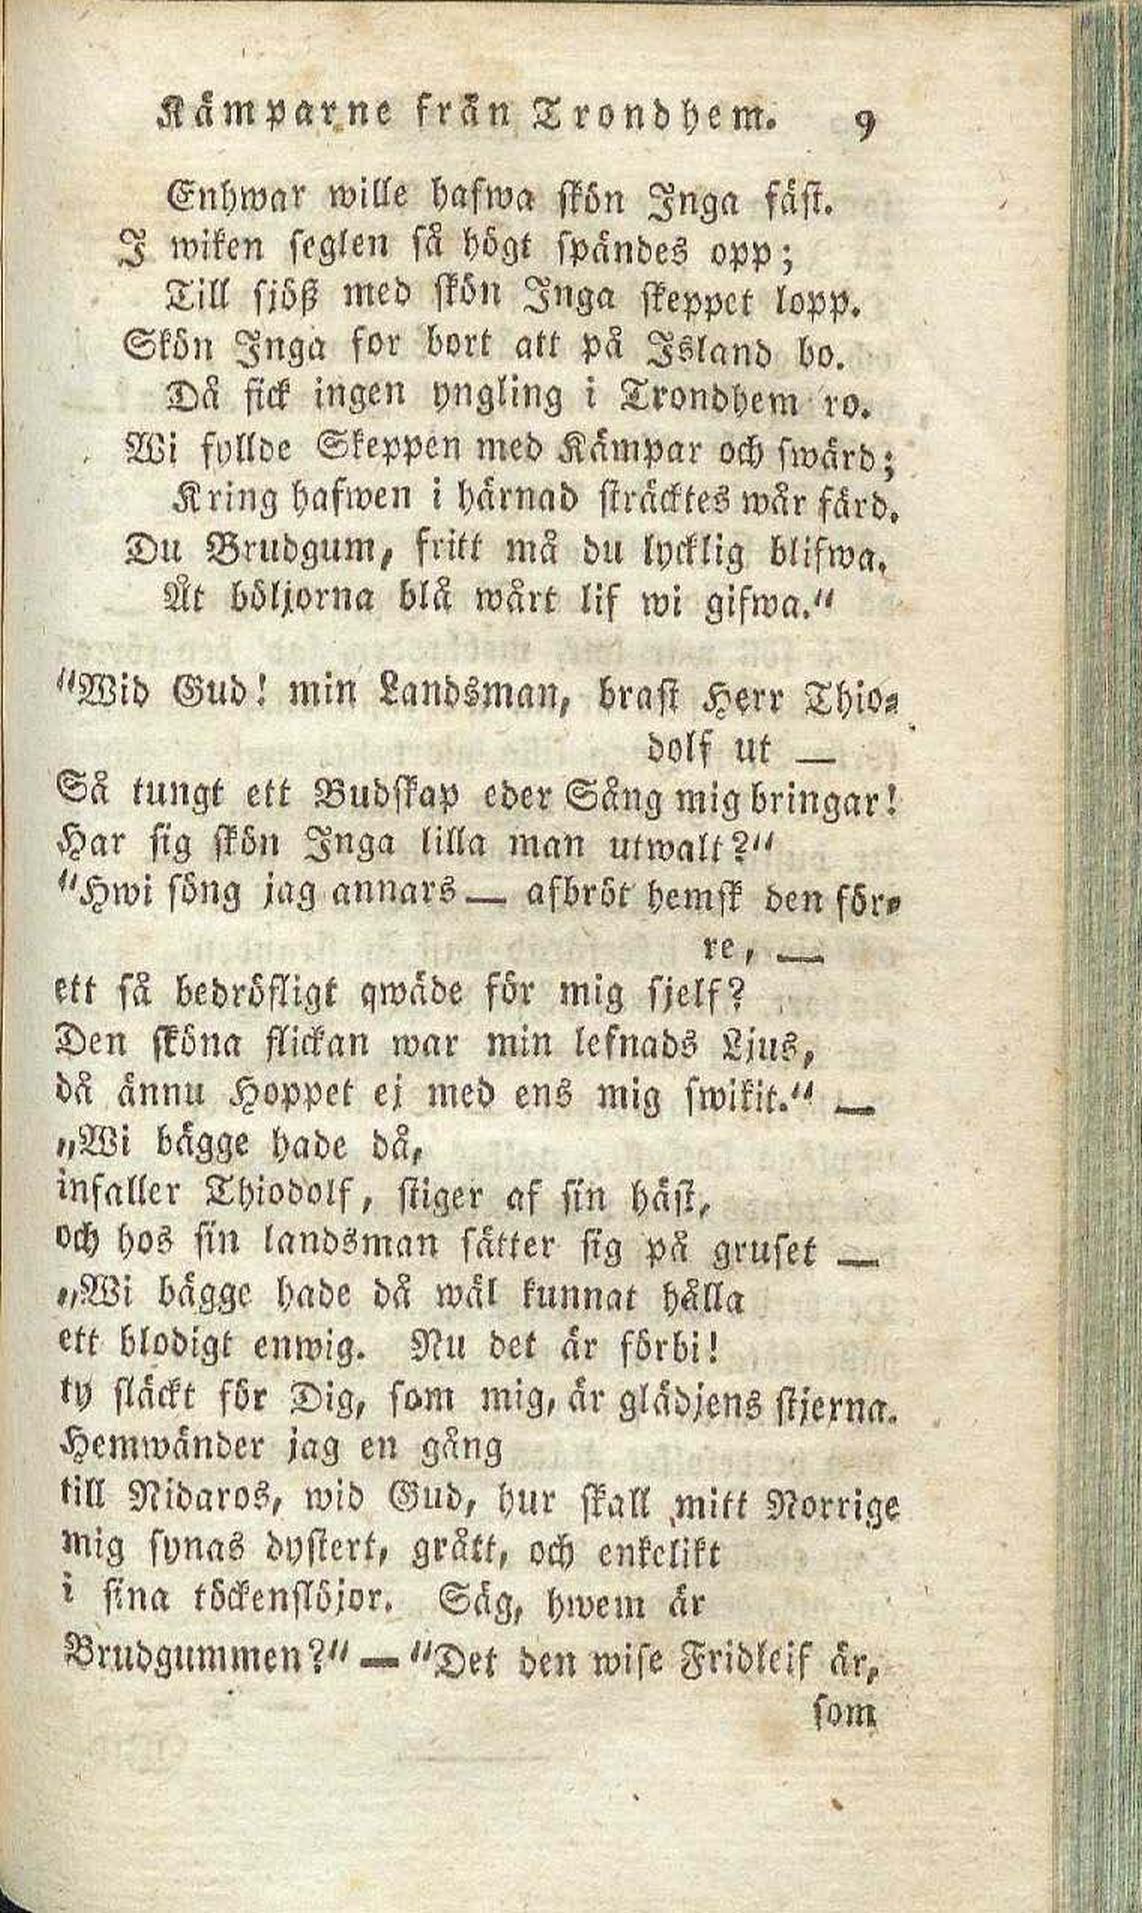 Kämparne från Trondhem. 9
Enhwar wille hafwa skön Inga fäst.
I wiken seglen så högt spändes opp;
Till sjöß med skön Inga skeppet lopp.
Skön Inga for bort att på Island bo.
Då fick ingen yngling i Trondhem ro.
Wi fyllde Skeppen med Kämpar och swärd;
Kring hafwen i härnad sträcktes wår färd.
Du Brudgum, fritt må du lycklig blifwa.
Åt böljorna blå wårt lif wi gifwa."
"Wid Gud! min Landsman, brast Herr Thio-
dolf ut —
Så tungt ett Budskap eder Sång mig bringar!
Har sig skön Inga lilla man utwalt?"
"Hwi söng jag annars — afbröt hemsk den för-
re, —
ett så bedröfligt qwäde för mig sjelf?
Den sköna flickan war min lefnads Ljus,
då ännu Hoppet ej med ens mig swikit." —
„Wi bägge hade då,
infaller Thiodolf, stiger af sin häst,
och hos sin landsman sätter sig på gruset —
„Wi bägge hade då wäl kunnat hålla
ett blodigt enwig. Nu det är förbi!
ty släckt för Dig, som mig, är glädjens stjerna.
Hemwänder jag en gång
till Nidaros, wid Gud, hur skall mitt Norrige
mig synas dystert, grått, och enkelikt
i sina töckenslöjor. Säg, hwem är
Brudgummen?" — "Det den wise Fridleif är,
som